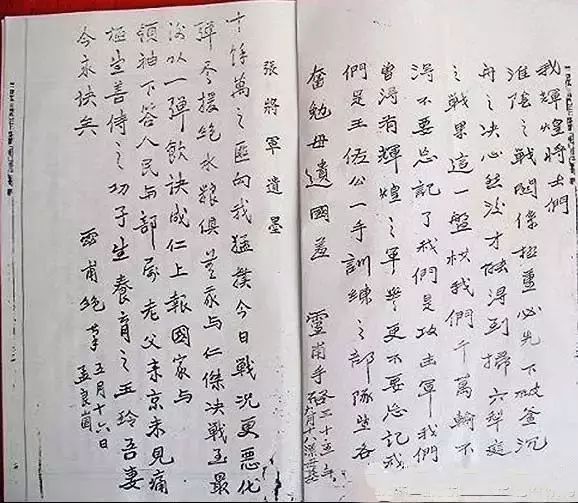 我輝煌將士們
淮陰之戰關係極重必先下破釜沉
舟之決心然後才能得到掃穴犁庭
之戰果這一盤棋我們千萬輸不
得不要忘記了我們是攻擊軍我們
曾得有輝煌之軍譽更不要忘記我
們是王佐公一手訓練之部隊望各
奮勉毋遺國羞
靈甫手啓三十五年
九月十八
張將軍遺墨
十餘萬之匪向我猛撲今日戰況更惡化
彈盡援絕水糧俱無我與仁傑決戰至最
後以一彈飲訣成仁上報國家與
領袖下答人民與部屬老父來京未見痛
極望善待之幼子望養育之玉玲吾妻
今永訣矣
靈甫絕筆 五月十六日
孟良崮